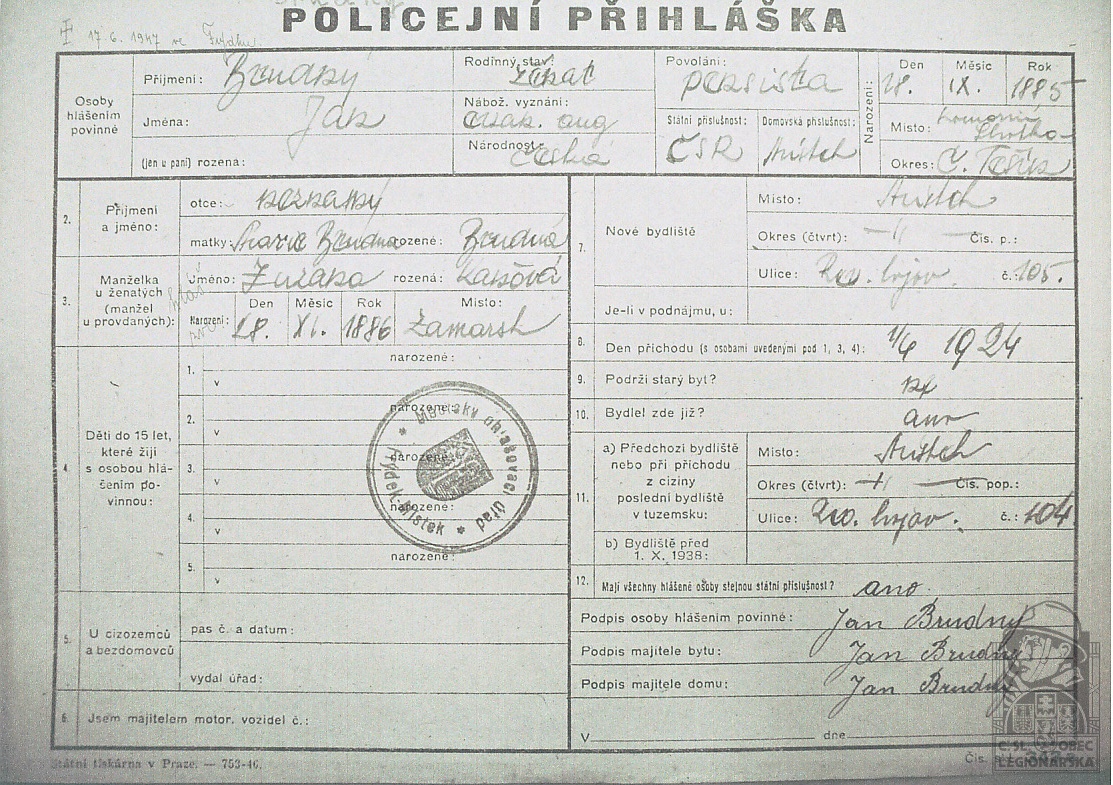 POLICEJNÍ PŘIHLÁŠKA
17. 6. 1947 ve
Osoby hlášením povinné
Příjmení: Brudny
Jména: Jan
(jen u paní) rozená:
Rodinný stav: ženat
Nábož. vyznání: evak. aug
Národnost: česká
Povolání: pensista
Státní příslušnost: ČSR
Domovská příslušnost: Místek
Narození:
Den Měsíc Rok
28. IX. 1885
Místo:
Okres: Č. Těšín
2. Příjmení a jméno:
otce: neznámý
matky: Marie Brudna rozené: Brudná
3. Manželka u ženatých (manžel u provdaných):
Jméno: Zuzana rozená:
Narození:
Den Měsíc Rok Místo:
28. XI. 1886 Zamarsk
4. Děti do 15 let, které žijí s osobou hlášením povinnou:
1. narozené:
v
2. narozené:
v
3. narozené:
v
4. narozené:
v
5. narozené:
v
Městský ohlašovací úřad
Frýdek-Místek
5. U cizozemců a bezdomovců
pas č. a datum:
vydal úřad:
6. Jsem majitelem motor. vozidel č.:
7. Nové bydliště
Místo: Místek
Okres (čtvrt): — 〃 — Čís. p.:
Ulice: č.: 105.
Je-li v podnájmu, u:
8. Den příchodu (s osobami uvedenými pod 1, 3, 4): 1/6 1924
9. Podrží starý byt? ne
10. Bydlel zde již? ano
11. a) Předchozí bydliště nebo při příchodu z ciziny poslední bydliště v tuzemsku:
Místo: Místek
Okres (čtvrt): — 〃 — Čís. pop.:
Ulice: č.: 104
b) Bydliště před 1. X. 1938:
12. Mají všechny hlášené osoby stejnou státní příslušnost? ano.
Podpis osoby hlášením povinné: Jan Brudný
Podpis majitele bytu: Jan Brudný
Podpis majitele domu: Jan Brudný
V dne
Státní tiskárna v Praze. — 753-46.
Čís.
Č. SL. OBEC
LEGIONÁŘSKÁ